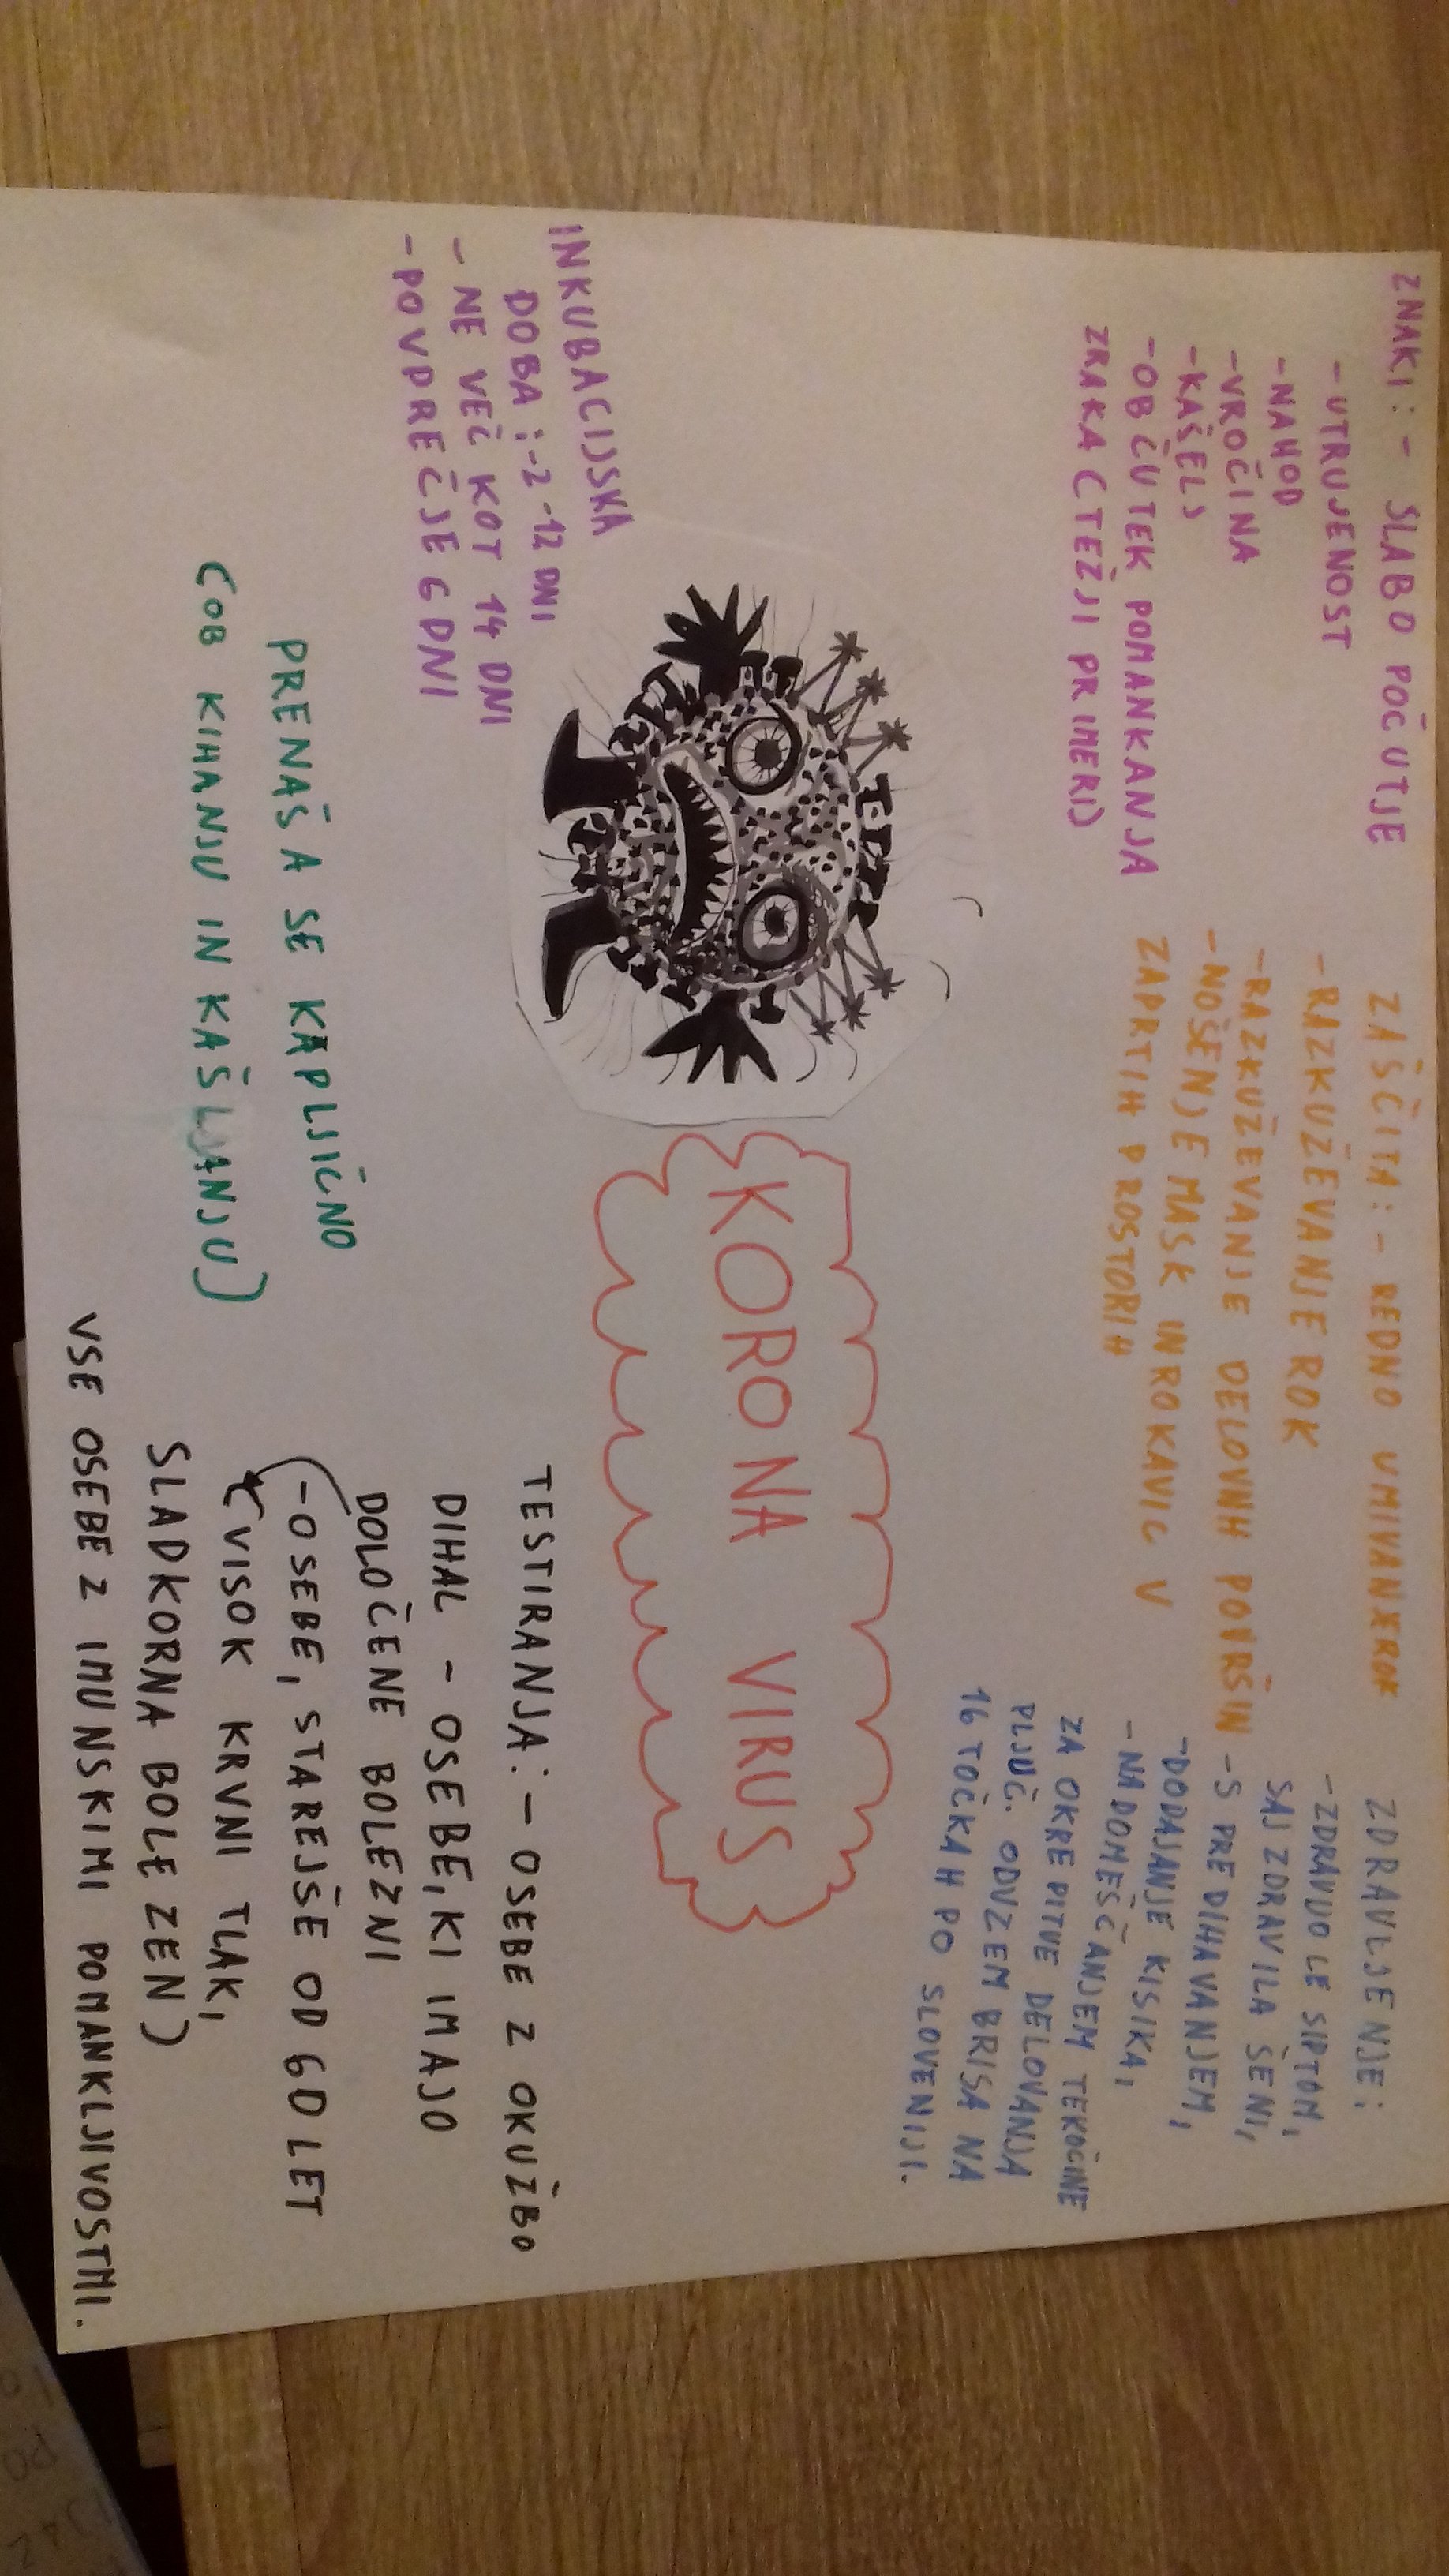 ZNAKI: - SLABO POČUTJE
- UTRUJENOST
- NAHOD
- VROČINA
- KAŠELJ
- OBČUTEK POMANKANJA
ZRAKA (TEŽJI PRIMERI)
ZAŠČITA: - REDNO UMIVANJE ROK
- RAZKUŽEVANJE ROK
- RAZKUŽEVANJE DELOVNH POVRŠIN
- NOŠENJE MASK IN ROKAVIC V
ZAPRTIH PROSTORIH
ZDRAVLJENJE:
- ZDRAVIJO LE SIPTOM,
SAJ ZDRAVILA ŠENI,
- S PREDIHAVANJEM,
- DODAJANJE KISIKA,
- NADOMEŠČANJEM TEKOČINE
ZA OKREPITVE DELOVANJA
PLJUČ. ODVZEM BRISA NA
16 TOČKAH PO SLOVENIJI.
KORONA VIRUS
INKUBACIJSKA
DOBA: -2-12 DNI
- NE VEČ KOT 14 DNI
- POVPREČJE 6 DNI
PRENAŠA SE KAPLJIČNO
(OB KIHANJU IN KAŠLJANJU)
TESTIRANJA: - OSEBE Z OKUŽBO
DIHAL - OSEBE, KI IMAJO
DOLOČENE BOLEZNI
- OSEBE, STAREJŠE OD 60 LET
(VISOK KRVNI TLAK,
SLADKORNA BOLEZEN)
VSE OSEBE Z IMUNSKIMI POMANKLJIVOSTMI.